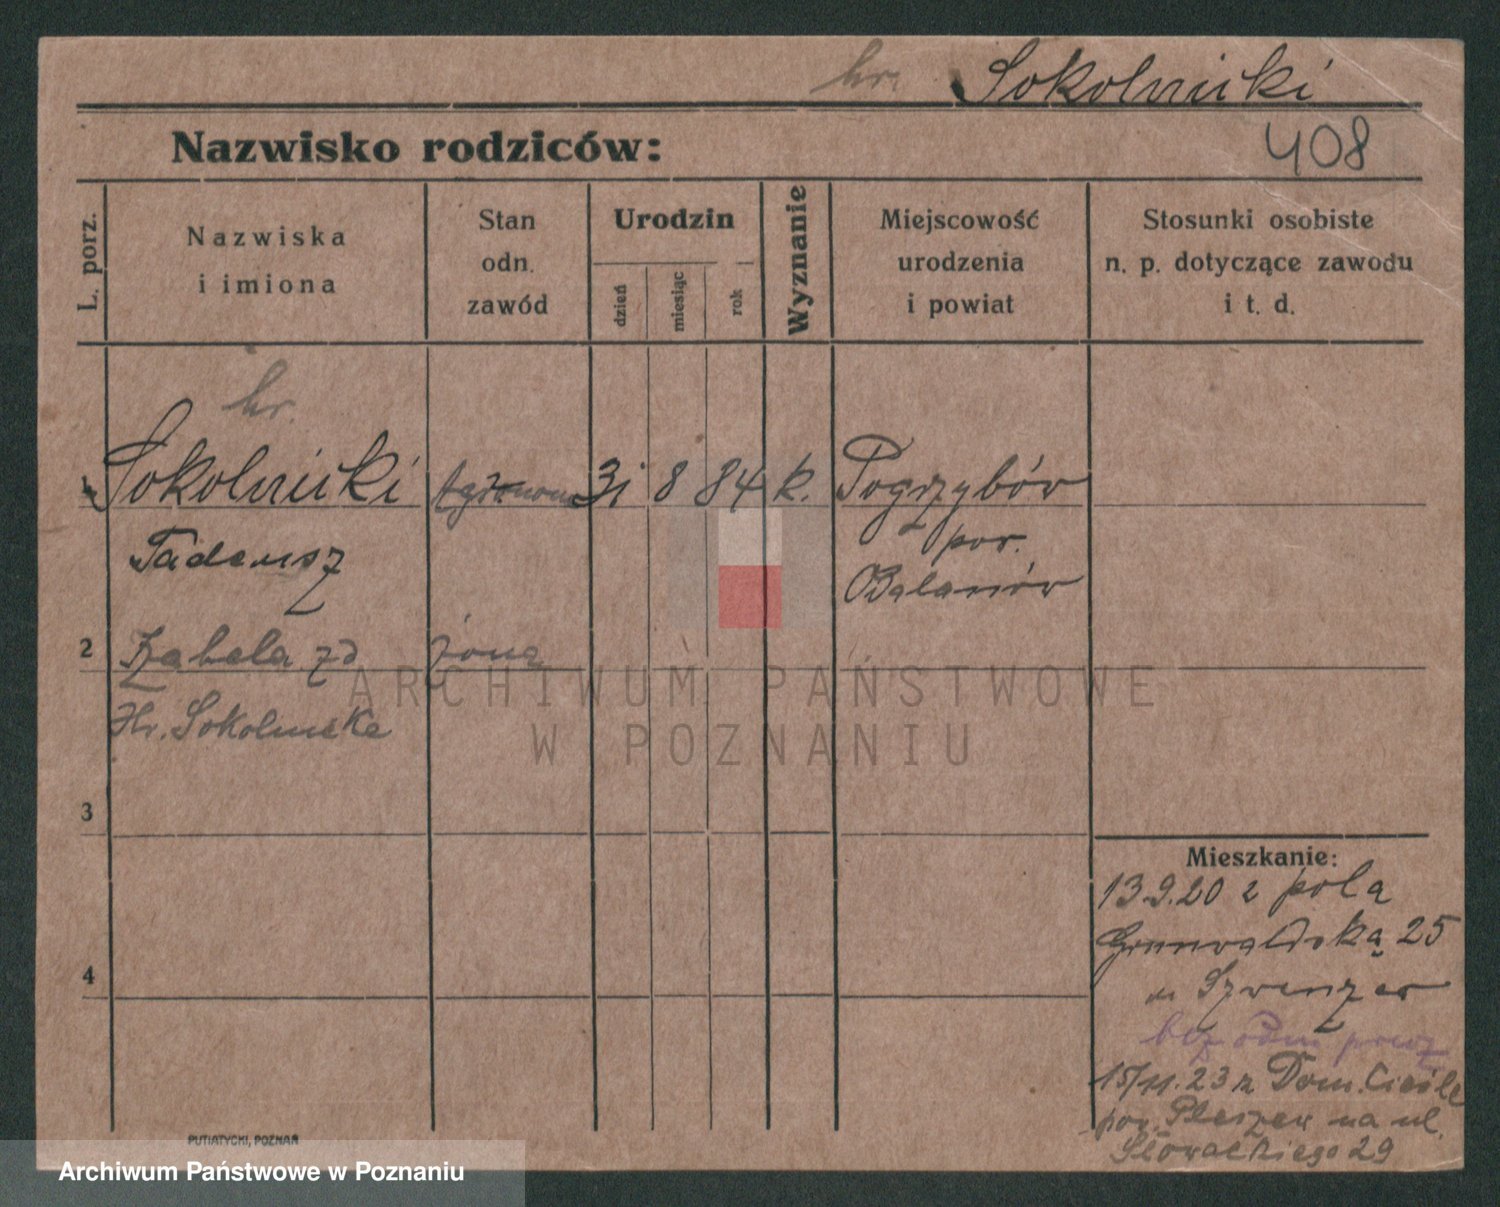 hr. Sokolnicki
Nazwisko rodziców:
408
L. porz.
Nazwiska
i imiona
Stan
odn.
zawód
Urodzin
dzień
miesiąc
rok
Wyznanie
Miejscowość
urodzenia
i powiat
Stosunki osobiste
n. p. dotyczące zawodu
i t. d.
hr.
1 Sokolnicki Agronom 31 8 84 k. Pogrzybów
Tadeusz pow.
Odalanów
2 Izabela zd żona
Hr. Sokolnicka
3
4
Mieszkanie:
13.9.20 z pola
Grunwaldzka 25
bez odm
15/11.23 z Dom. Cieśle
pow. Pleszew na ul.
Słowackiego 29
PUTIATYCKI, POZNAŃ
ARCHIWUM PAŃSTWOWE
W POZNANIU
Archiwum Państwowe w Poznaniu